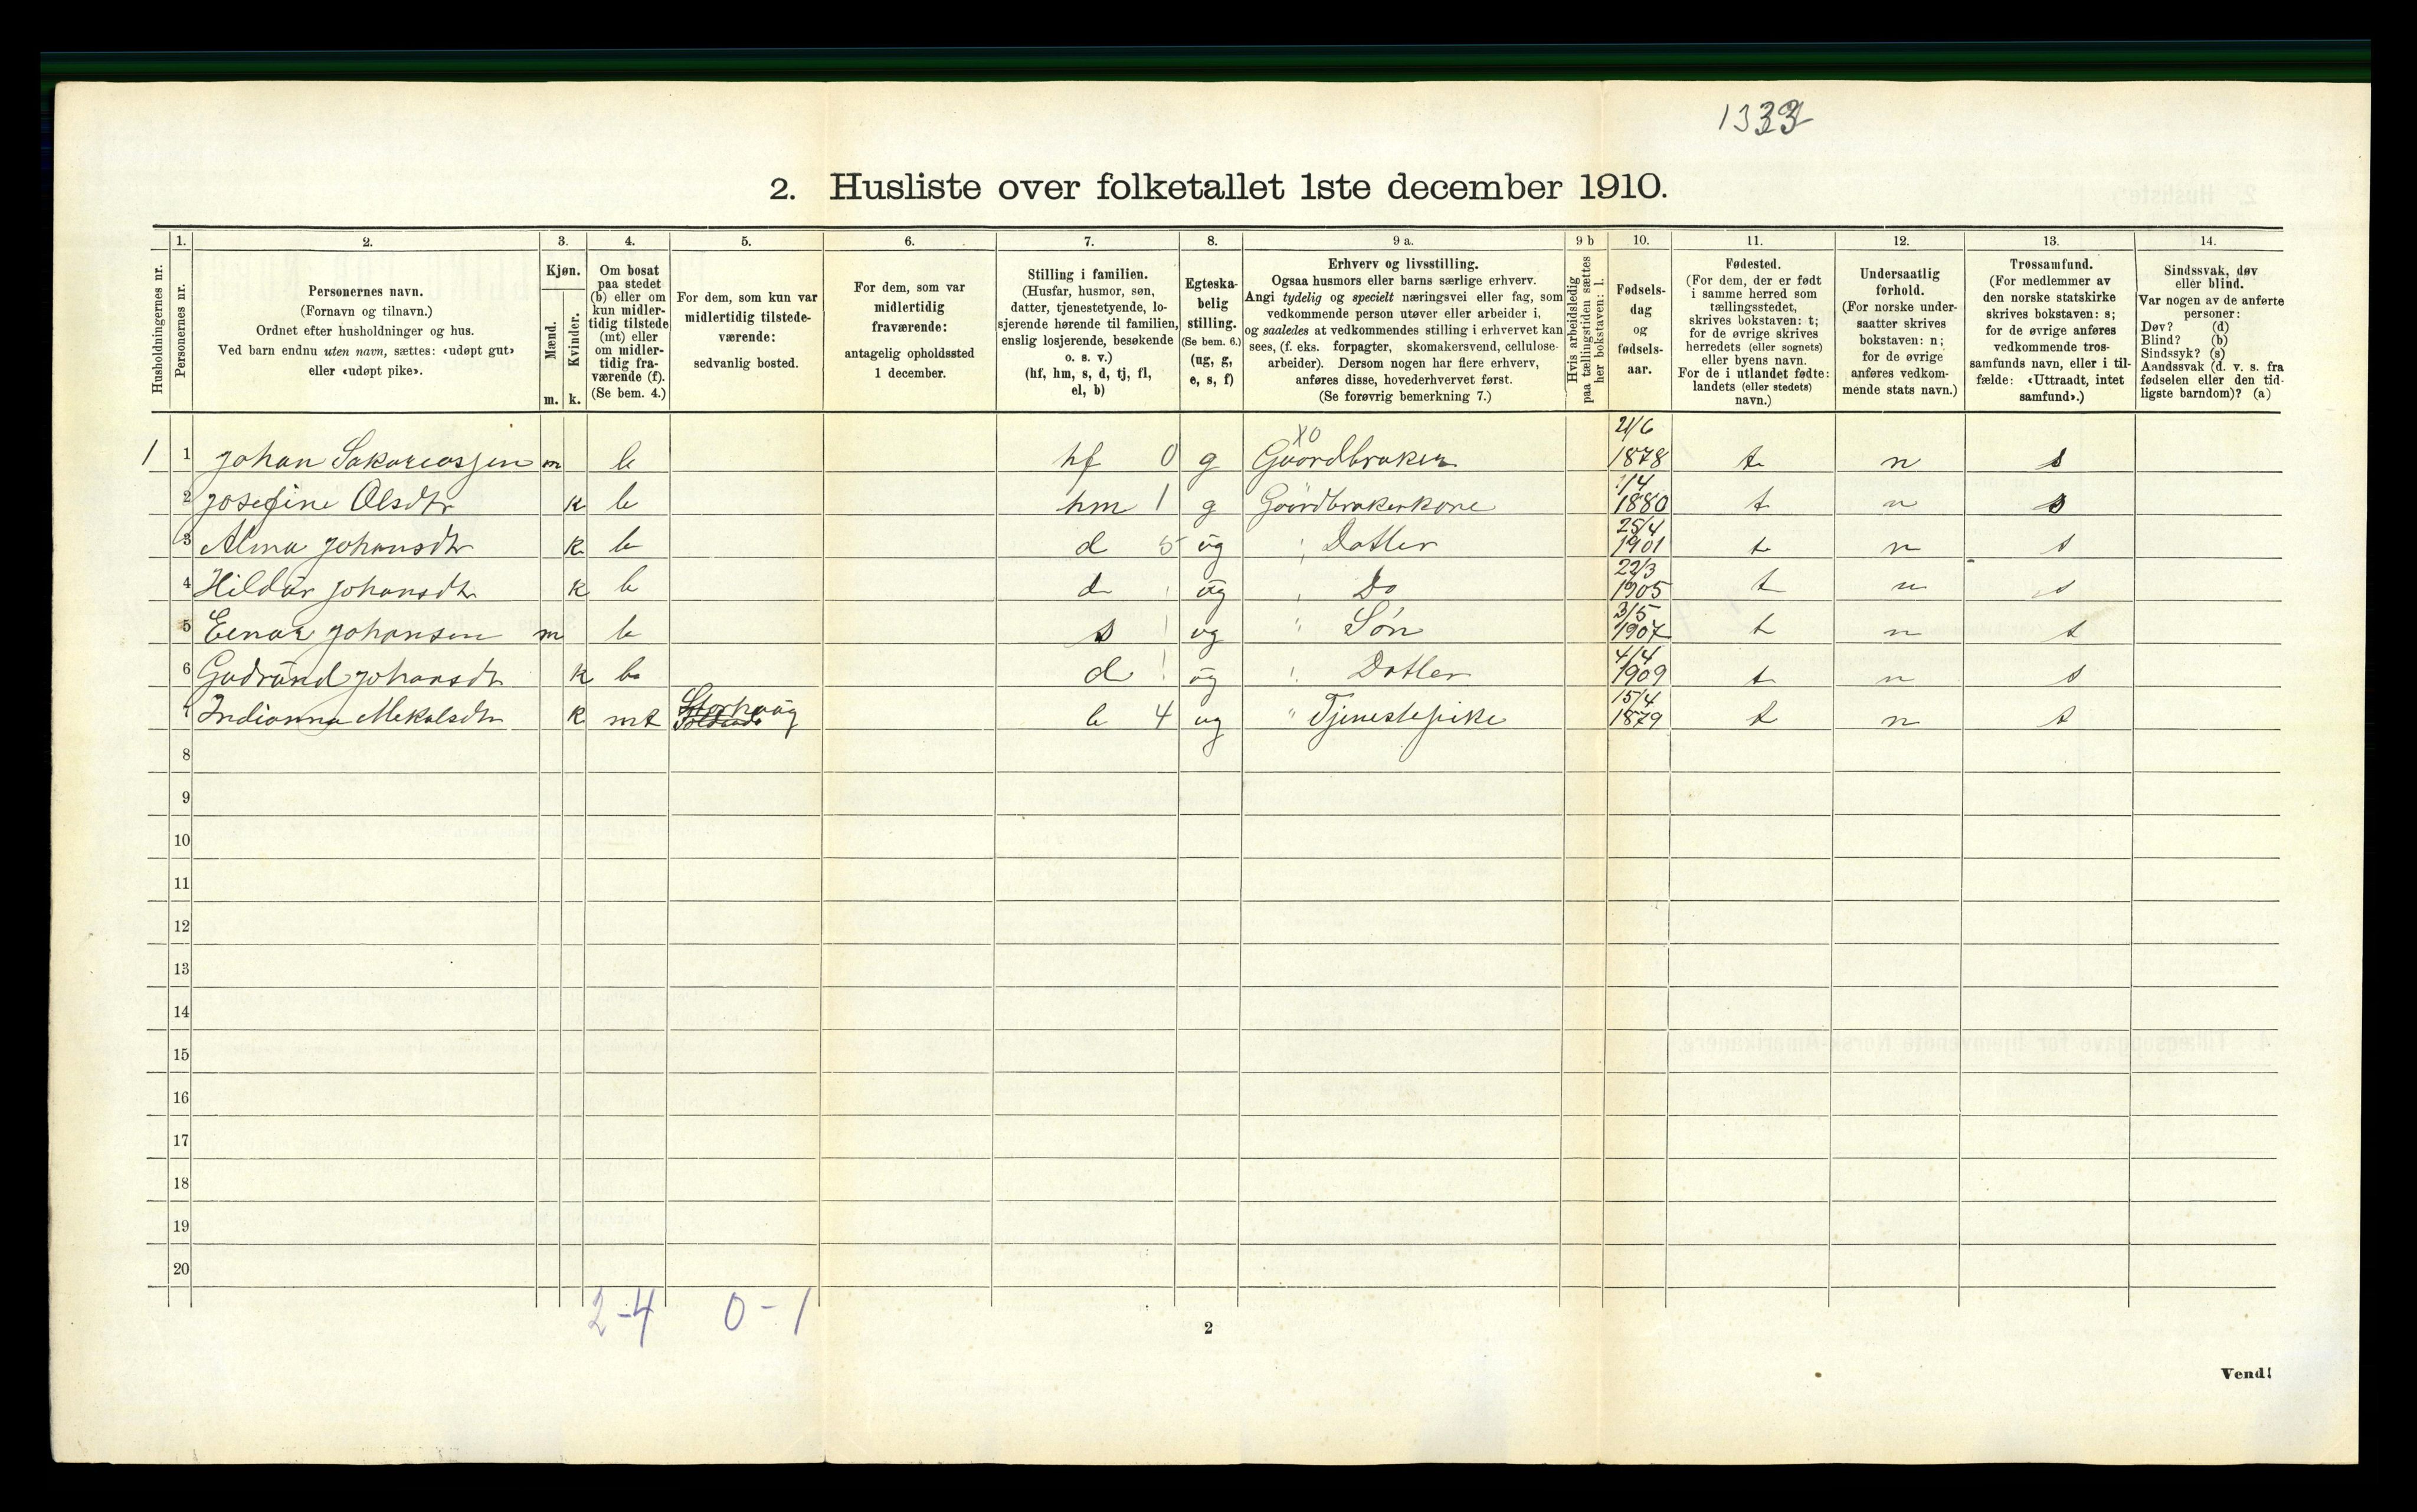 1333
2. Husliste over folketallet 1ste december 1910.
Husholdningernes nr.
1.
Personernes nr.
2.
Personernes navn.
(Fornavn og tilnavn.)
Ordnet efter husholdninger og hus.
Ved barn endnu uten navn, sættes: «udøpt gut»
eller «udøpt pike».
3.
Kjøn.
Mænd.
Kvinder.
m. k.
4.
Om bosat
paa stedet
(b) eller om
kun midler-
tidig tilstede
(mt) eller
om midler-
tidig fra-
værende (f).
(Se bem. 4.)
5.
For dem, som kun var
midlertidig tilstede-
værende:
sedvanlig bosted.
6.
For dem, som var
midlertidig
fraværende:
antagelig opholdssted
1 december.
7.
Stilling i familien.
(Husfar, husmor, søn,
datter, tjenestetyende, lo-
sjerende hørende til familien,
enslig losjerende, besøkende
o. s. v.)
(hf, hm, s, d, tj, fl,
el, b)
8.
Egteska-
belig
stilling.
(Se bem. 6.)
(ug, g,
e, s, f)
9 a.
Erhverv og livsstilling.
Ogsaa husmors eller barns særlige erhverv.
Angi tydelig og specielt næringsvei eller fag, som
vedkommende person utøver eller arbeider i,
og saaledes at vedkommendes stilling i erhvervet kan
sees, (f. eks. forpagter, skomakersvend, cellulose-
arbeider). Dersom nogen har flere erhverv,
anføres disse, hovederhvervet først.
(Se forøvrig bemerkning 7.)
9 b
Hvis arbeidsledig
paa tællingstiden sættes
her bokstaven: l.
10.
Fødsels-
dag
og
fødsels-
aar.
11.
Fødested.
(For dem, der er født
i samme herred som
tællingsstedet,
skrives bokstaven: t;
for de øvrige skrives
herredets (eller sognets)
eller byens navn.
For de i utlandet fødte:
landets (eller stedets)
navn.)
12.
Undersaatlig
forhold.
(For norske under-
saatter skrives
bokstaven: n;
for de øvrige
anføres vedkom-
mende stats navn.)
13.
Trossamfund.
(For medlemmer av
den norske statskirke
skrives bokstaven: s;
for de øvrige anføres
vedkommende tros-
samfunds navn, eller i til-
fælde: «Uttraadt, intet
samfund».)
14.
Sindssvak, døv
eller blind.
Var nogen av de anførte
personer:
Døv? (d)
Blind? (b)
Sindssyk? (s)
Aandssvak (d. v. s. fra
fødselen eller den tid-
ligste barndom)? (a)
1 1 Johan Sakareassen m b hf 0 g XO Gaardbruker 21/6 1878 t n s
2 Josefine Olsdtr k b hm 1 g Gaardbrukerkone 1/4 1880 t n s
3 Alma Johansdtr k b d 5 ug " Datter 25/4 1901 t n s
4 Hildur Johansdtr k b d ug " Do 22/3 1905 t n s
5 Einar Johansen m b s ug " Søn 3/5 1907 t n s
6 Gudrund Johansdtr k b d ug " Datter 4/4 1909 t n s
7 Indianna Mekalsdtr k mt Storhaug b 4 ug " Tjenestepike 15/4 1879 t n s
8
9
10
11
12
13
14
15
16
17
18
19
20
2-4 0-1
2
Vend!